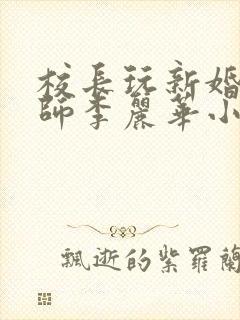 校長玩新婚
師李麗華小
飄逝的紫羅蘭